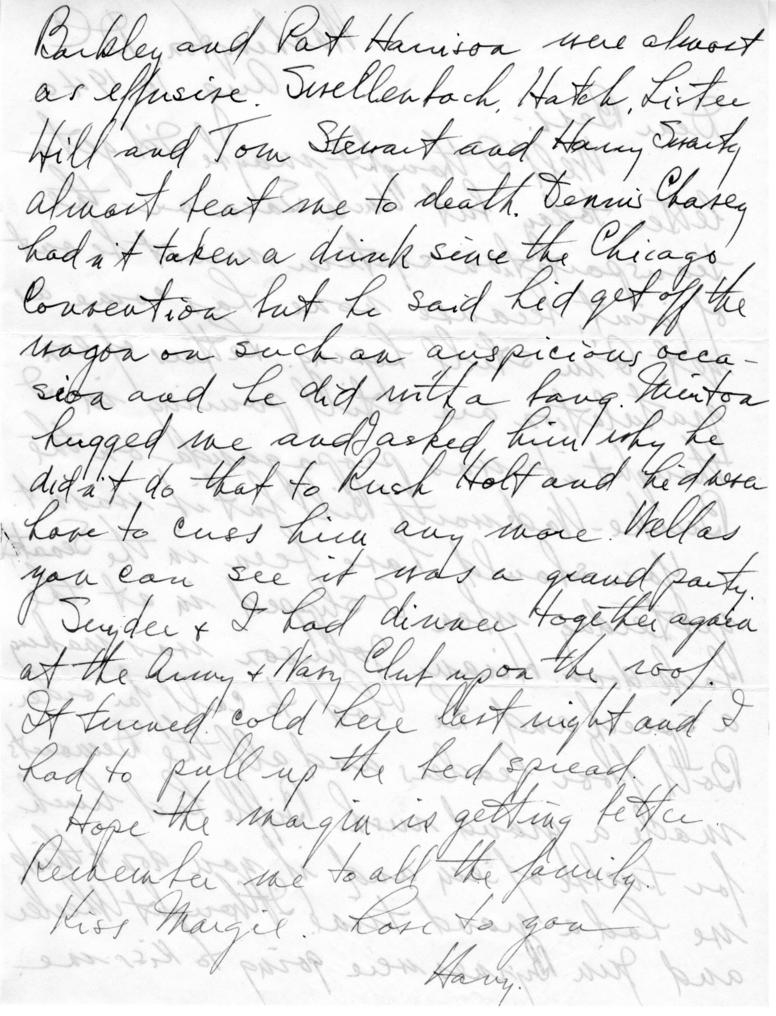 Barkley and Pat Harrison were almost
as effusive. Swellenbach, Hatch, Lister
Hill and Tom Stewart and Harry Swartz
almost beat me to death. Dennis Chavez
hadn't taken a drink since the Chicago
Convention but he said he'd get off the
wagon on such an auspicious occa-
sion and he did with a bang. Minton
hugged me and I asked him why he
didn't do that to Rush Holt and he'd never
have to cuss him any more. Well as
you can see it was a grand party.
Snyder & I had dinner together again
at the Army & Navy Club up on the roof.
It turned cold here last night and I
had to pull up the bed spread.
Hope the margin is getting better.
Remember me to all the family.
Kiss Margie. Love to you
Harry.